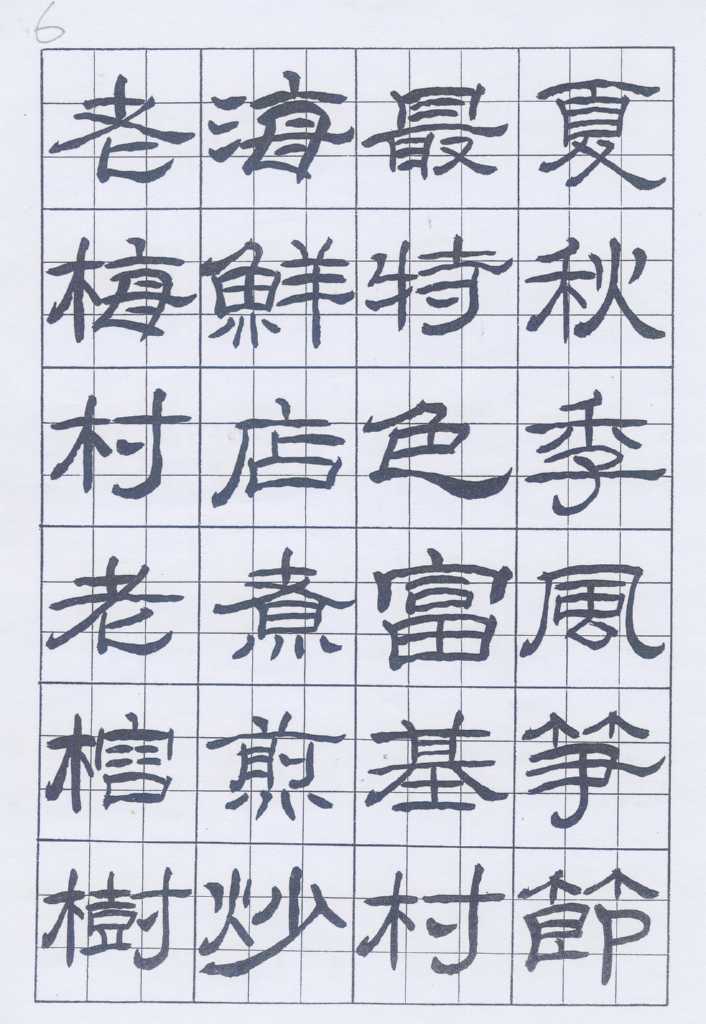 6
夏秋季風箏節
最特色富基村
海鮮店煮煎炒
老梅村老榕樹